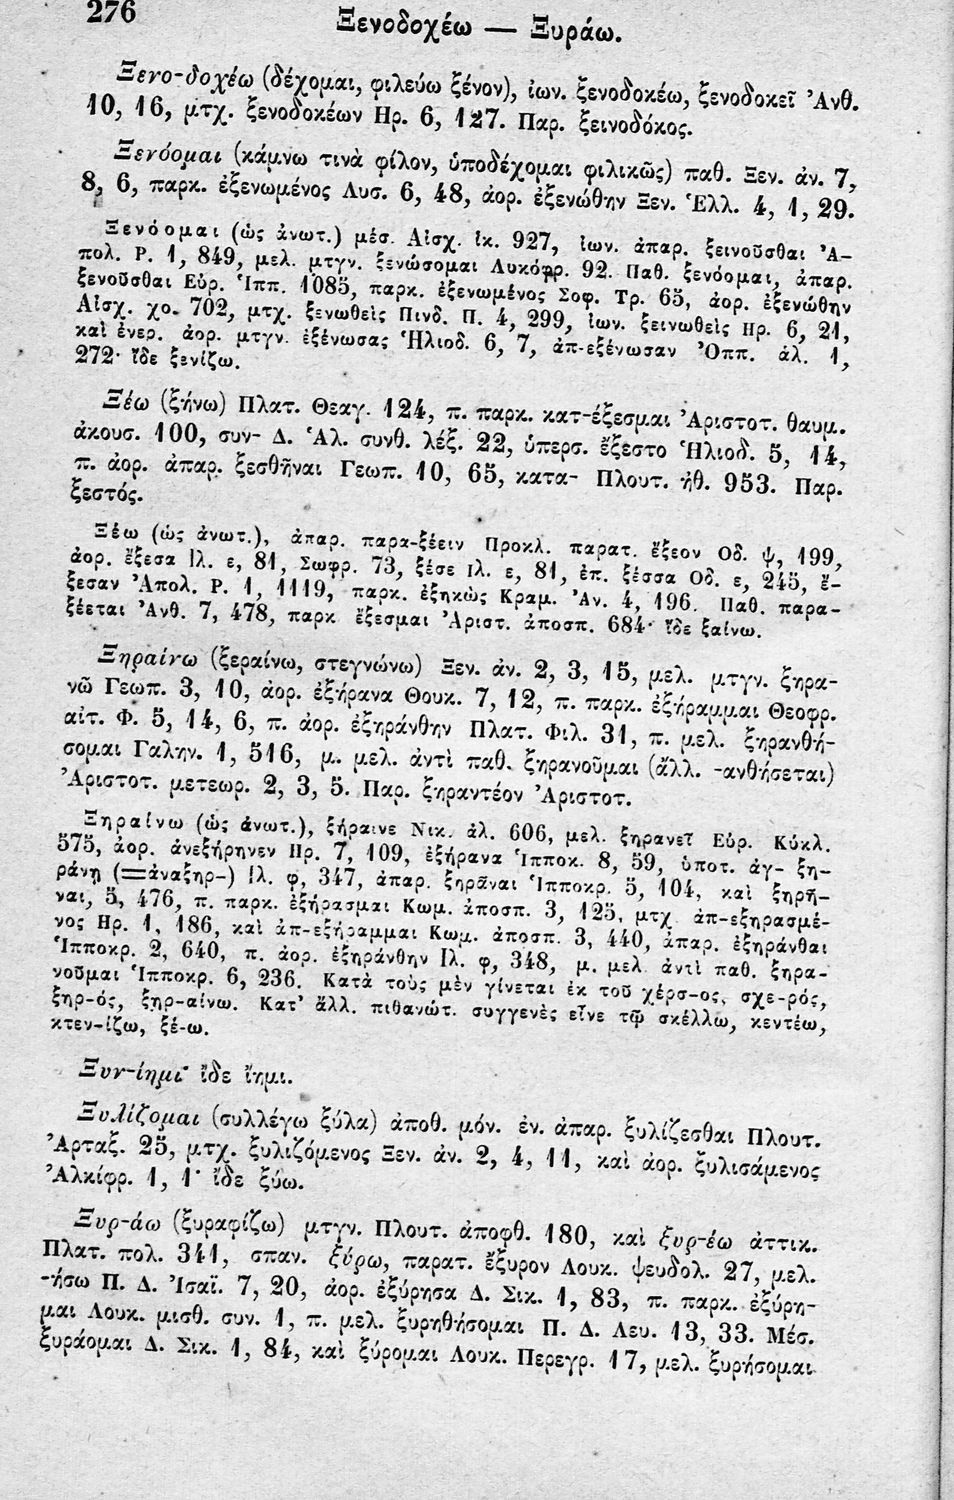 276
Ξενοδοχέω — Ξυράω.
Ξενο-δοχέω (δέχομαι, φιλεύω ξένον), ἰων. ξενοδοκέω, ξενοδοκεῖ Ἀνθ.
10, 16, μτχ. ξενοδοκέων Ηρ. 6, 127. Παρ. ξεινοδόκος.
Ξενόομαι (κάμνω τινὰ φίλον, ὑποδέχομαι φιλικῶς) παθ. Ξεν. ἀν. 7,
8, 6, παρκ. ἐξενωμένος Λυσ. 6, 48, ἀορ. ἐξενώθην Ξεν. Ἑλλ. 4, 1, 29.
Ξενόομαι (ὡς ἀνωτ.) μέσ. Αἰσχ. ἱκ. 927, ἰων. ἀπαρ. ξεινοῦσθαι Ἀ-
πολ. Ρ. 1, 849, μελ. μτγν. ξενώσομαι Λυκόφρ. 92. Παθ. ξενόομαι, ἀπαρ.
ξενοῦσθαι Εὐρ. Ἱππ. 1085, παρκ. ἐξενωμένος Σοφ. Τρ. 65, ἀορ. ἐξενώθην
Αἰσχ. χο. 702, μτχ. ξενωθεὶς Πινδ. Π. 4, 299, ἰων. ξεινωθεὶς Ηρ. 6, 21,
καὶ ἐνερ. ἀορ. μτγν. ἐξένωσας Ἡλιοδ. 6, 7, ἀπ-εξένωσαν Ὀππ. ἁλ. 1,
272· ἴδε ξενίζω.
Ξέω (ξήνω) Πλατ. Θεαγ. 124, π. παρκ. κατ-έξεσμαι Ἀριστοτ. θαυμ.
ἀκουσ. 100, συν- Δ. Ἁλ. συνθ. λέξ. 22, ὑπερσ. ἔξεστο Ἡλιοδ. 5, 14,
π. ἀορ. ἀπαρ. ξεσθῆναι Γεωπ. 10, 65, κατα- Πλουτ. ἠθ. 953. Παρ.
ξεστός.
Ξέω (ὡς ἀνωτ.), ἀπαρ. παρα-ξέειν Προκλ. παρατ. ἔξεον Οδ. ψ, 199,
ἀορ. ἔξεσα Ιλ. ε, 81, Σωφρ. 73, ξέσε Ιλ. ε, 81, ἐπ. ξέσσα Οδ. ε, 245, ἔ-
ξεσαν Ἀπολ. Ρ. 1, 1119, παρκ. ἐξηκὼς Κραμ. Ἀν. 4, 196. Παθ. παρα-
ξέεται Ἀνθ. 7, 478, παρκ ἔξεσμαι Ἀριστ. ἀποσπ. 684· ἴδε ξαίνω.
Ξηραίνω (ξεραίνω, στεγνώνω) Ξεν. ἀν. 2, 3, 15, μελ. μτγν. ξηρα-
νῶ Γεωπ. 3, 10, ἀορ. ἐξήρανα Θουκ. 7, 12, π. παρκ. ἐξήραμμαι Θεοφρ.
αἰτ. Φ. 5, 14, 6, π. ἀορ. ἐξηράνθην Πλατ. Φιλ. 31, π. μελ. ξηρανθή-
σομαι Γαλην. 1, 516, μ. μελ. ἀντὶ παθ. ξηρανοῦμαι (ἄλλ. -ανθήσεται)
Ἀριστοτ. μετεωρ. 2, 3, 5. Παρ. ξηραντέον Ἀριστοτ.
Ξηραίνω (ὡς ἀνωτ.), ξήραινε Νικ. ἀλ. 606, μελ. ξηρανεῖ Εὐρ. Κύκλ.
575, ἀορ. ἀνεξήρηνεν Ηρ. 7, 109, ἐξήρανα Ἱπποκ. 8, 59, ὑποτ. ἀγ- ξη-
ράνῃ (=ἀναξηρ-) Ιλ. φ, 347, ἀπαρ. ξηρᾶναι Ἱπποκρ. 5, 104, καὶ ξηρῆ-
ναι, 5, 476, π. παρκ. ἐξήρασμαι Κωμ. ἀποσπ. 3, 125, μτχ ἀπ-εξηρασμέ-
νος Ηρ. 1, 186, καὶ ἀπ-εξήραμμαι Κωμ. ἀποσπ. 3, 440, ἀπαρ. ἐξηράνθαι
Ἱπποκρ. 2, 640, π. ἀορ. ἐξηράνθην Ιλ. φ, 348, μ. μελ ἀντὶ παθ. ξηρα-
νοῦμαι Ἱπποκρ. 6, 236. Κατὰ τοὺς μὲν γίνεται ἐκ τοῦ χέρσ-ος, σχε-ρός,
ξηρ-ός, ξηρ-αίνω. Κατ' ἄλλ. πιθανώτ. συγγενὲς εἶνε τῷ σκέλλω, κεντέω,
κτεν-ίζω, ξέ-ω.
Ξυν-ίημι· ἴδε ἵημι.
Ξυλίζομαι (συλλέγω ξύλα) ἀποθ. μόν. ἐν. ἀπαρ. ξυλίζεσθαι Πλουτ.
Ἀρταξ. 25, μτχ. ξυλιζόμενος Ξεν. ἀν. 2, 4, 11, καὶ ἀορ. ξυλισάμενος
Ἀλκίφρ. 1, 1· ἴδε ξύω.
Ξυρ-άω (ξυραφίζω) μτγν. Πλουτ. ἀποφθ. 180, καὶ ξυρ-έω ἀττικ.
Πλατ. πολ. 341, σπαν. ξύρω, παρατ. ἔξυρον Λουκ. ψευδολ. 27, μελ.
-ήσω Π. Δ. Ἰσαϊ. 7, 20, ἀορ. ἐξύρησα Δ. Σικ. 1, 83, π. παρκ. ἐξύρη-
μαι Λουκ. μισθ. συν. 1, π. μελ. ξυρηθήσομαι Π. Δ. Λευ. 13, 33. Μέσ.
ξυράομαι Δ. Σικ. 1, 84, καὶ ξύρομαι Λουκ. Περεγρ. 17, μελ. ξυρήσομαι